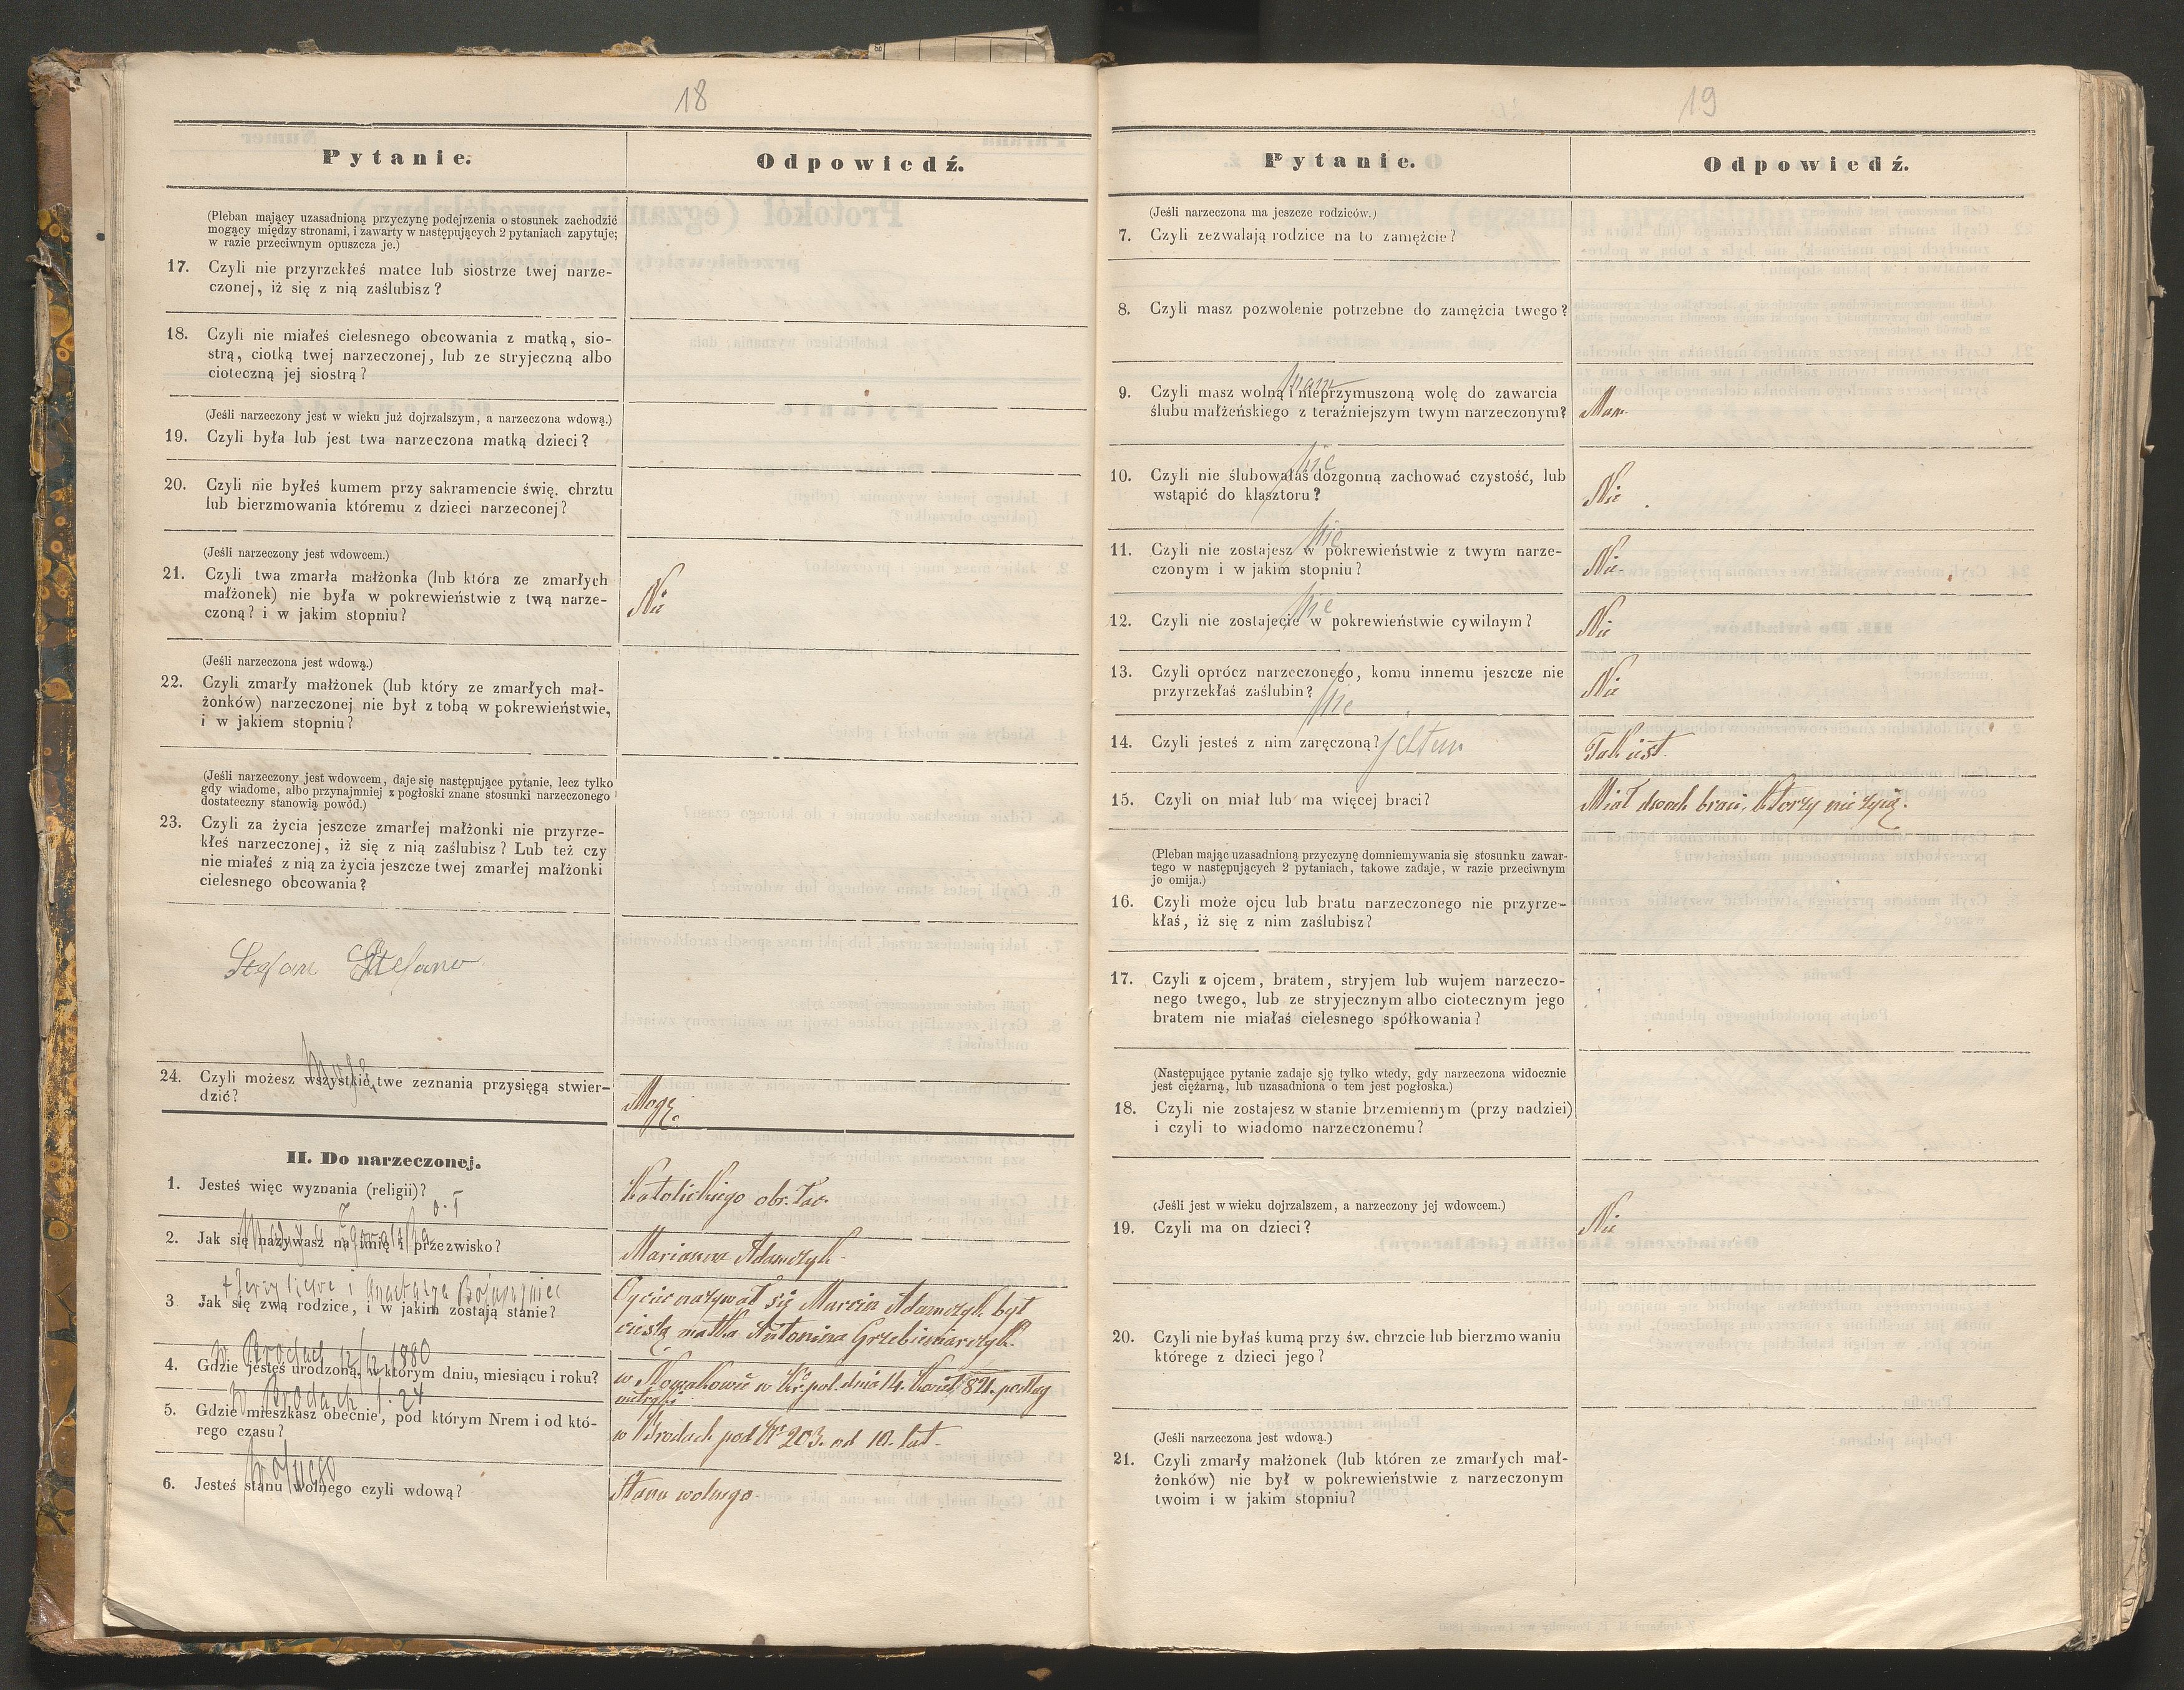 18
Pytanie.
Odpowiedź.
(Pleban mający uzasadnioną przyczynę podejrzenia o stosunek zachodzić
mogący między stronami, i zawarty w następujących 2 pytaniach zapytuje;
w razie przeciwnym opuszcza je.)
17. Czyli nie przyrzekłeś matce lub siostrze twej narze-
czonej, iż się z nią zaślubisz?
18. Czyli nie miałeś cielesnego obcowania z matką, sio-
strą, ciotką twej narzeczonej, lub ze stryjeczną albo
cioteczną jej siostrą?
(Jeśli narzeczony jest w wieku już dojrzalszym, a narzeczona wdową.)
19. Czyli była lub jest twa narzeczona matką dzieci?
20. Czyli nie byłeś kumem przy sakramencie świę. chrztu
lub bierzmowania któremu z dzieci narzeconej?
(Jeśli narzeczony jest wdowcem.)
21. Czyli twa zmarła małżonka (lub która ze zmarłych
małżonek) nie była w pokrewieństwie z twą narze-
czoną? i w jakim stopniu?
Nie
(Jeśli narzeczona jest wdową.)
22. Czyli zmarły małżonek (lub który ze zmarłych mał-
żonków) narzeczonej nie był z tobą w pokrewieństwie,
i w jakiem stopniu?
(Jeśli narzeczony jest wdowcem, daje się następujące pytanie, lecz tylko
gdy wiadome, albo przynajmniej z pogłoski znane stosunki narzeczonego
dostateczny stanowią powód.)
23. Czyli za życia jeszcze zmarłej małżonki nie przyrze-
kłeś narzeczonej, iż się z nią zaślubisz? Lub też czy
nie miałeś z nią za życia jeszcze twej zmarłej małżonki
cielesnego obcowania?
Stefan
Mogę
24. Czyli możesz wszystkie twe zeznania przysięgą stwier-
dzić?
Mogę.
II. Do narzeczonej.
1. Jesteś więc wyznania (religii)?
Katolickiego obr. łac.
2. Jak się nazywasz na imię i przezwisko?
Marianna Adamczyk.
3 Jak się zwą rodzice, i w jakim zostają stanie?
Ojciec nazywał się Marcin Adamczyk był
cieślą matka Antonina
w Brodach 12/12 1880
4. Gdzie jesteś urodzoną, w którym dniu, miesiącu i roku?
w Kr. pol. dnia 14. 821. podług
metryki.
w Brodach l. 24
5. Gdzie mieszkasz obecnie, pod którym Nrem i od któ-
rego czasu?
w Brodach pod Nr 203. od 10. lat.
wolnego
6. Jesteś stanu wolnego czyli wdową?
Stanu wolnego.
19
Pytanie.
Odpowiedź.
(Jeśli narzeczona ma jeszcze rodziców.)
7. Czyli zezwalają rodzice na to zamężcie?
8. Czyli masz pozwolenie potrzebne do zamężcia twego?
mam
9. Czyli masz wolną i nieprzymuszoną wolę do zawarcia
ślubu małżeńskiego z teraźniejszym twym narzeczonym?
Mam.
nie
10. Czyli nie ślubowałaś dozgonną zachować czystość, lub
wstąpić do klasztoru?
Nie
nie
11. Czyli nie zostajesz w pokrewieństwie z twym narze-
czonym i w jakim stopniu?
Nie
nie
12. Czyli nie zostajecie w pokrewieństwie cywilnym?
Nie
13. Czyli oprócz narzeczonego, komu innemu jeszcze nie
przyrzekłaś zaślubin?
nie
Nie
14. Czyli jesteś z nim zaręczoną? jestem
Tak jest.
15. Czyli on miał lub ma więcej braci?
Miał dwoch braci, ktorzy nie żyią.
(Pleban mając uzasadnioną przyczynę domniemywania się stosunku zawar-
tego w następujących 2 pytaniach, takowe zadaje, w razie przeciwnym
je omija.)
16. Czyli może ojcu lub bratu narzeczonego nie przyrze-
kłaś, iż się z nim zaślubisz?
17. Czyli z ojcem, bratem, stryjem lub wujem narzeczo-
nego twego, lub ze stryjecznym albo ciotecznym jego
bratem nie miałaś cielesnego spółkowania?
(Następujące pytanie zadaje się tylko wtedy, gdy narzeczona widocznie
jest ciężarną, lub uzasadniona o tem jest pogłoska.)
18. Czyli nie zostajesz w stanie brzemiennym (przy nadziei)
i czyli to wiadomo narzeczonemu?
(Jeśli jest w wieku dojrzalszem, a narzeczony jej wdowcem.)
19. Czyli ma on dzieci?
Nie
20. Czyli nie byłaś kumą przy św. chrzcie lub bierzmowaniu
którege z dzieci jego?
(Jeśli narzeczona jest wdową.)
21. Czyli zmarły małżonek (lub któren ze zmarłych mał-
żonków) nie był w pokrewieństwie z narzeczonym
twoim i w jakim stopniu?